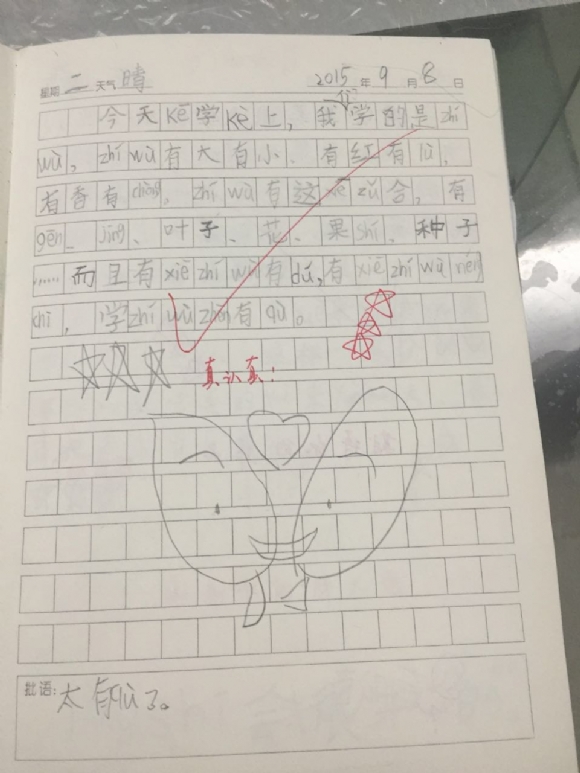 星期 二 天气 晴 2015 年 9 月 8 日
今天kē学kè上，我们学的是zhí
wù，zhí wù有大有小、有红有lǜ、
有香有chòu，zhí wù有这xiē zǔ合，有
gēn、jīng、叶子、花、果shí、种子
……而且有xiē zhí wù有dú，有xiē zhí wù néng
chī，学zhí wù zhēn有qù。
真认真！
批语：太有qù了。